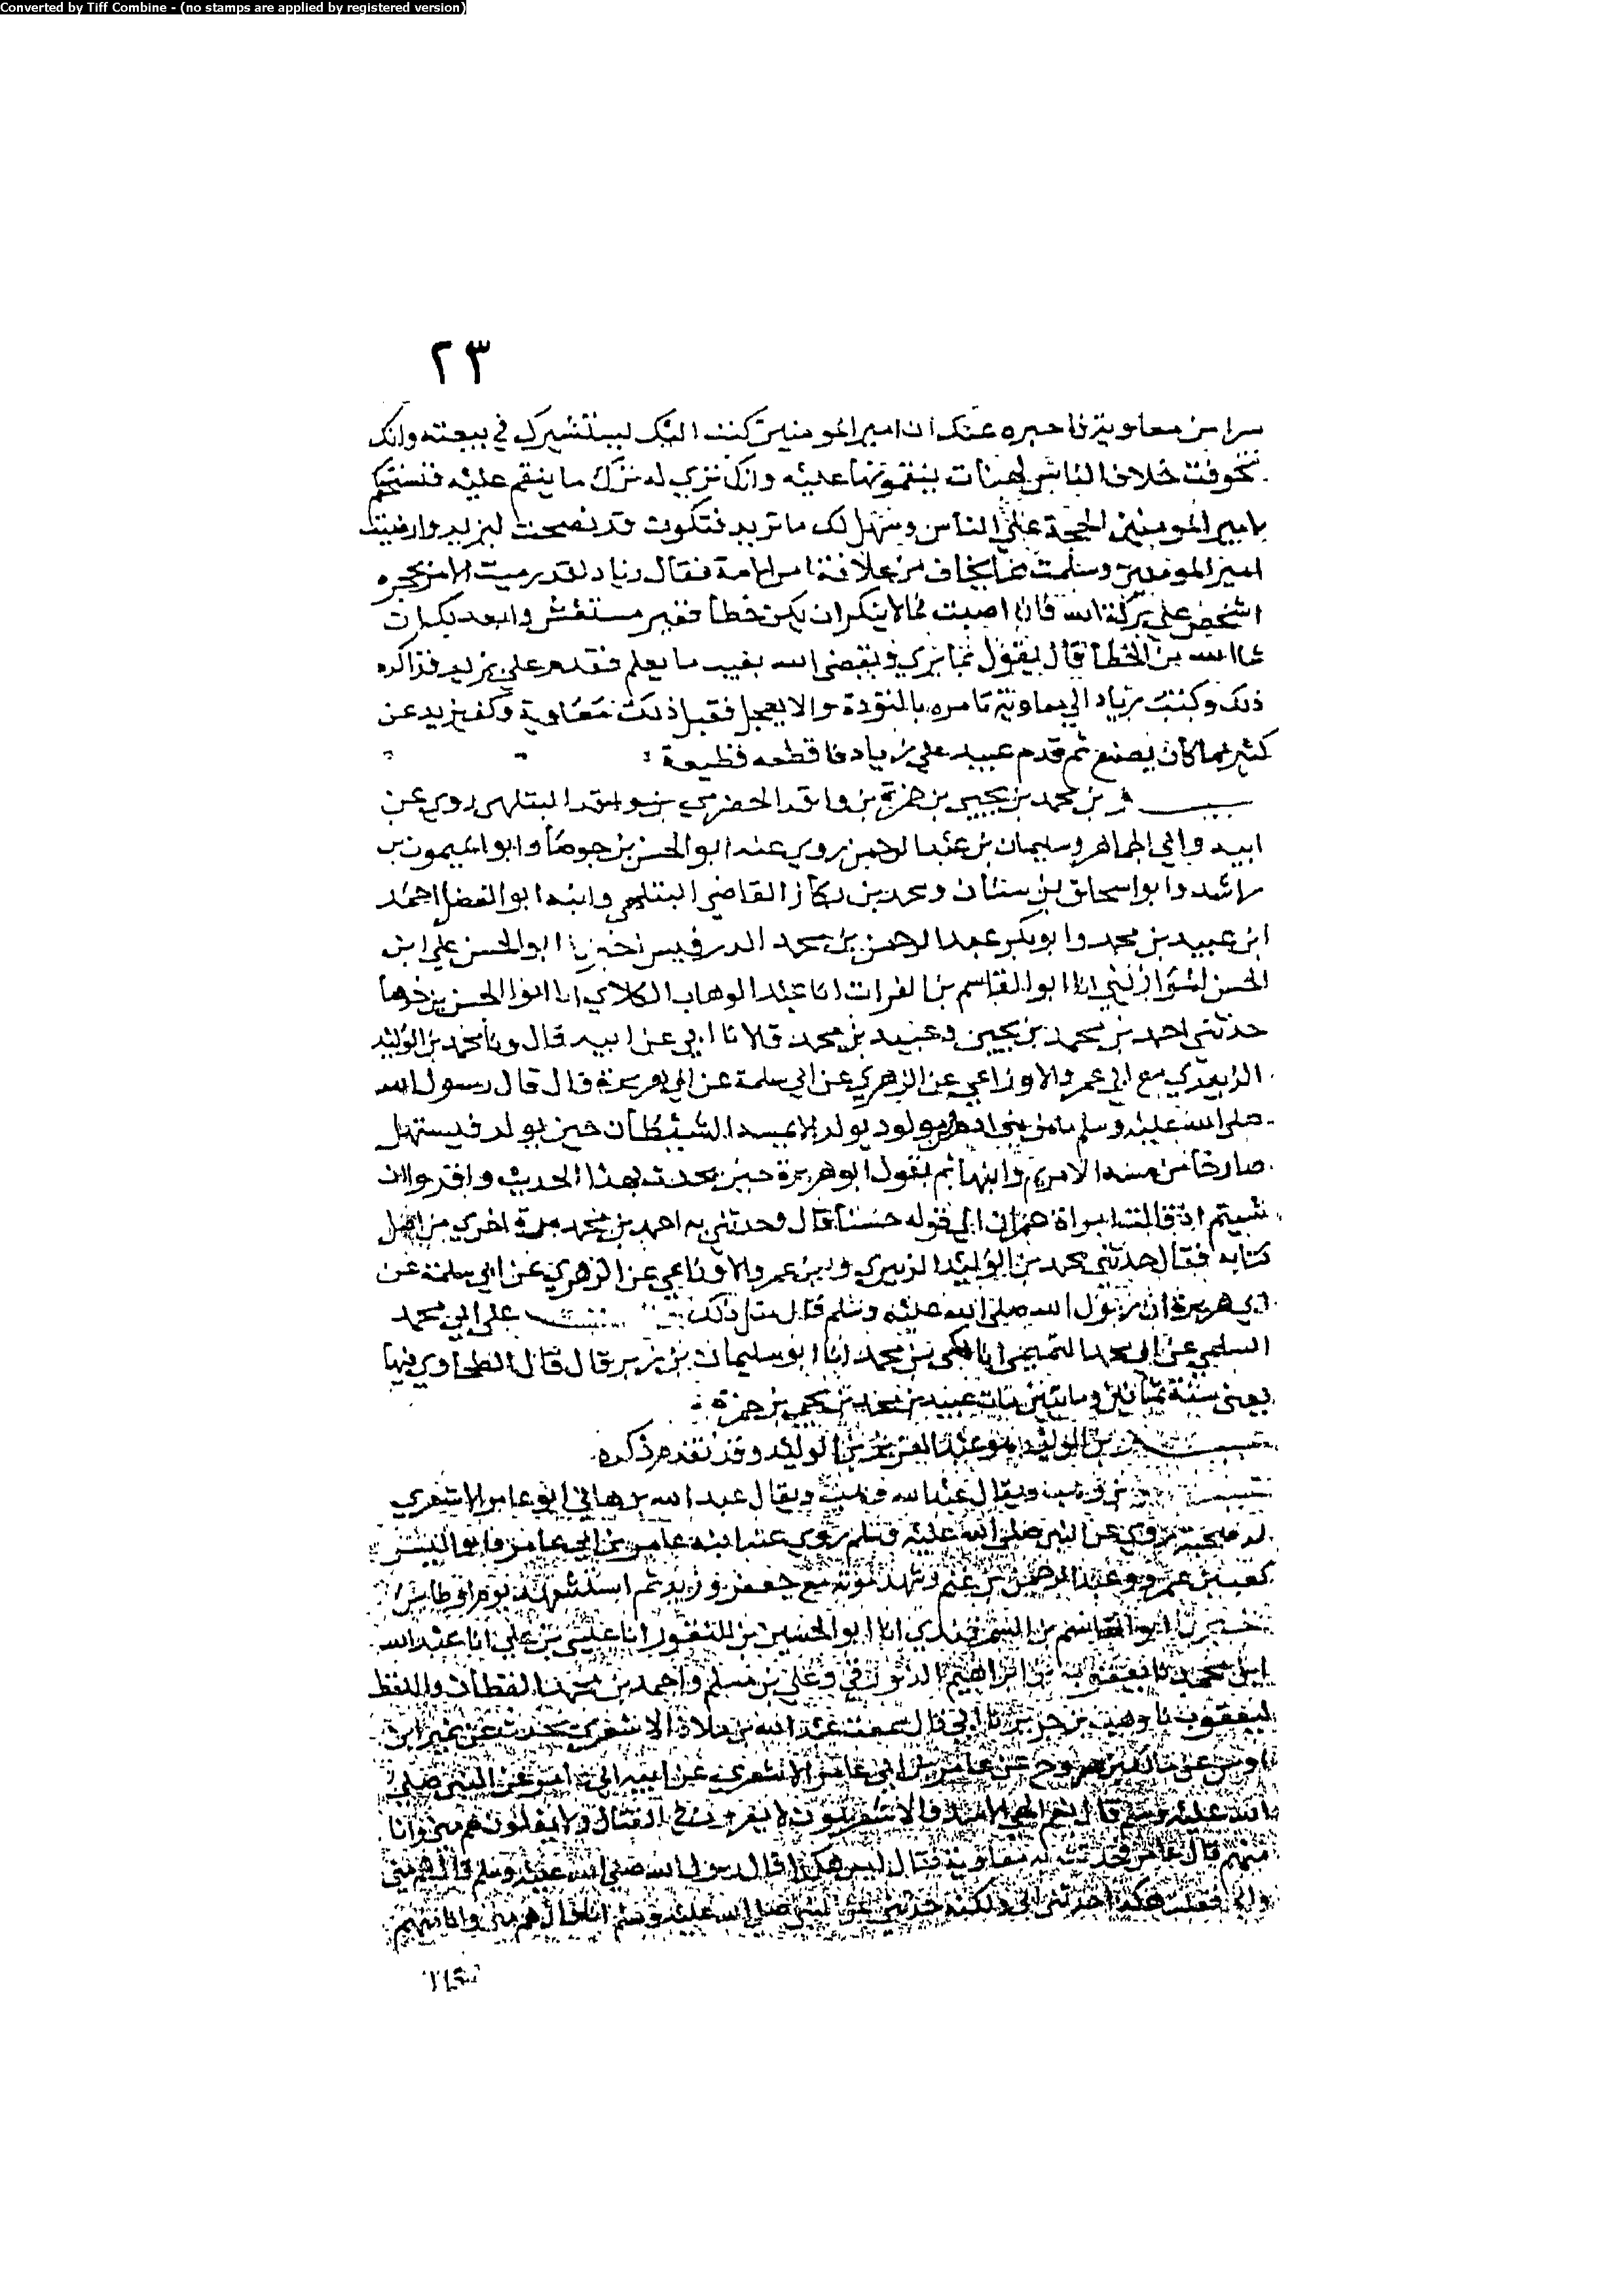 Converted by Tiff Combine - (no stamps are applied by registered version)
٢٣
سرا من معاوية فاخبره عنك ان امير المومنين كتب اليك ليستشيرك في بيعته وانك
تخوفت خلاف الناس لهنات ينقمونها عليه وانك تري له ترك ما ينقم عليه فتستحكم
يامير المومنين الحجة علي الناس وسهل لك ما تريد فتكون قد نصحت ليزيد وارضيت
امير المومنين وسلمت مما تخاف من علاقة امر الامة فقال زياد لقد رميت الامر بحجره
اشخص علي بركة الله فان اصبت فما لا ينكر وان يكن خطا فغير مستغش وابعد بك ان
شا الله من الخطا قال يقول بما يري ويقضي الله بغيب ما يعلم فقدم علي يزيد فذاكره
ذلك وكتب زياد الي معاوية تامره بالتؤدة والا يعجل فقبل ذلك معاوية وكف يزيد عن
كثير مما كان يصنع ثم قدم عبيد علي زياد فاقطعه قطيعة
بن محمد بن يحيي بن حمزة بن واقد الحضرمي بن واقد البتلهي روي عن
ابيه وابي الجماهر وسليمان بن عبد الرحمن روي عنه ابو الحسن بن جوصا وابو الميمون بن
راشد وابو اسحاق بن سنان ومحمد بن بكار القاضي البتلهي وابنه ابو الفضل احمد
ابن عبيد بن محمد وابو بكر عبد الرحمن بن محمد الدرفيس اخبرنا ابو الحسن علي ابن
الحسن انا ابو القاسم بن الفرات انا عبد الوهاب الكلابي انا ابو الحسن بن جوصا
حدثني احمد بن محمد بن يحيي وعبيد بن محمد قالا نا ابي عن ابيه قال ونا محمد بن الوليد
الزبيدي مع ابي عمرو الاوزاعي عن الزهري عن ابي سلمة عن ابي هريرة قال قال رسول الله
صلي الله عليه وسلم ما من بني ادم مولود يولد الا يمسه الشيطان حين يولد فيستهل
صارخا من مسه الا مريم وابنها ثم يقول ابو هريرة حين يحدث بهذا الحديث واقروا ان
شيتم اذ قالت امراة عمران الي قوله حسنا قال وحدثني به احمد بن محمد مرة اخري من اصل
كتابه فقال حدثني محمد بن الوليد الزبيدي وبن عمرو الاوزاعي عن الزهري عن ابي سلمة عن
ابي هريرة ان رسول الله صلي الله عليه وسلم قال مثل ذلك علي ابي محمد
السلمي عن ابي محمد التميمي انا مكي بن محمد انا ابو سليمان بن زبر قال قال الطحاوي فيها
يعني سنة ثمانين وماتين مات عبيد بن محمد بن يحيي بن حمزة
بن الوليد هو عبد العزيز بن الوليد وقد تقدم ذكره
ويقال عبد الله بن هاني ابو عامر الاشعري
له صحبة روي عن النبي صلي الله عليه وسلم روي عنه ابنه عامر بن ابي عامر وابو اليسر
كعب بن عمرو وعبد الرحمن بن غنم وشهد موته مع جعفر وزيد ثم استشهد يوم اوطاس
اخبرنا ابو القاسم بن السمرقندي انا ابو الحسين بن النقور انا عيسي بن علي انا عبد الله
ابن محمد نا يعقوب بن ابراهيم الدورقي وعلي بن مسلم واحمد بن القطان واللفظ
ليعقوب نا وهب بن جرير نا ابي قال سمعت عبد الله بن ملاذ الاشعري يحدث عن نمير ابن
اوس عن مالك بن مسروح عن عامر بن ابي عامر الاشعري عن ابيه ابي عامر عن النبي صلي
الله عليه وسلم قال نعم الحي الاسد والاشعريون لا يفرون في القتال ولا يغلون هم مني وانا
منهم قال عامر فحدثت به معاوية فقال ليس هكذا قال رسول الله صلي الله عليه وسلم قال هم مني
والي فقلت هكذا حدثني ابي ولكنه حدثني عن النبي صلي الله عليه وسلم انه قال هم مني وانا منهم